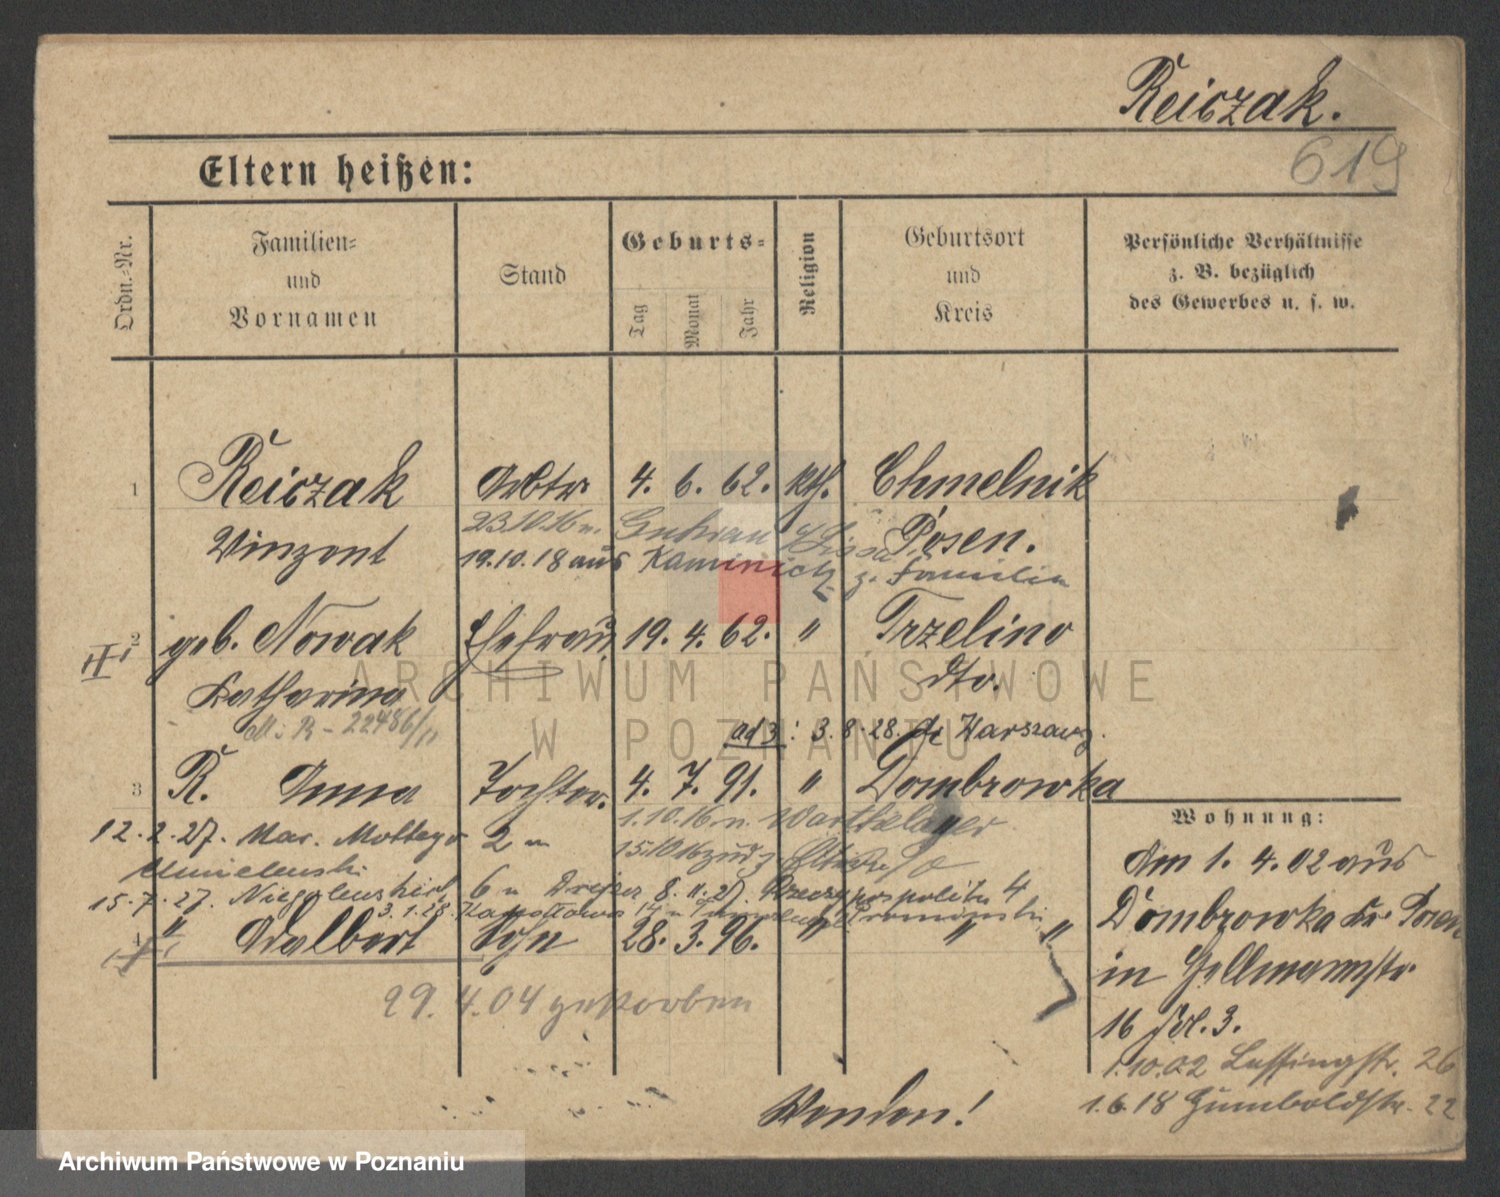 Reiczak.
619
Eltern heißen:
Ordn.-Nr.
Familien-
und
Vornamen
Stand
Geburts-
Tag
Monat
Jahr
Religion
Geburtsort
und
Kreis
Persönliche Verhältnisse
z. B. bezüglich
des Gewerbes u. s. w.
1 Reiczak Arbtr. 4. 6. 62. kth. Chmelnik
Vinzent Posen.
23.10.16 n.
19.10.18 aus z. Familie
2 geb. Nowak Ehefrau 19. 4. 62. " Trzelino
Katharina dto.
ad 3: 3.8.28. Warszawy.
3 R. Anna Tochter. 4. 7. 91. " Dombrowka
1.10.16 n. Warthelager
12.2.27. Mar. 2 m
15.10.16
15.7.27. 6 8.11.27. 4
3.1.28.
4 " Adalbert Sohn 28. 3. 96. " " "
29.4.04 gestorben
Wohnung:
Am 1. 4. 02 aus
Dombrowka Kr. Posen
in
16 3.
1.10.02 Lessingstr. 26
1.6.18 Humboldstr. 22
Wenden!
ARCHIWUM PAŃSTWOWE
W POZNANIU
Archiwum Państwowe w Poznaniu